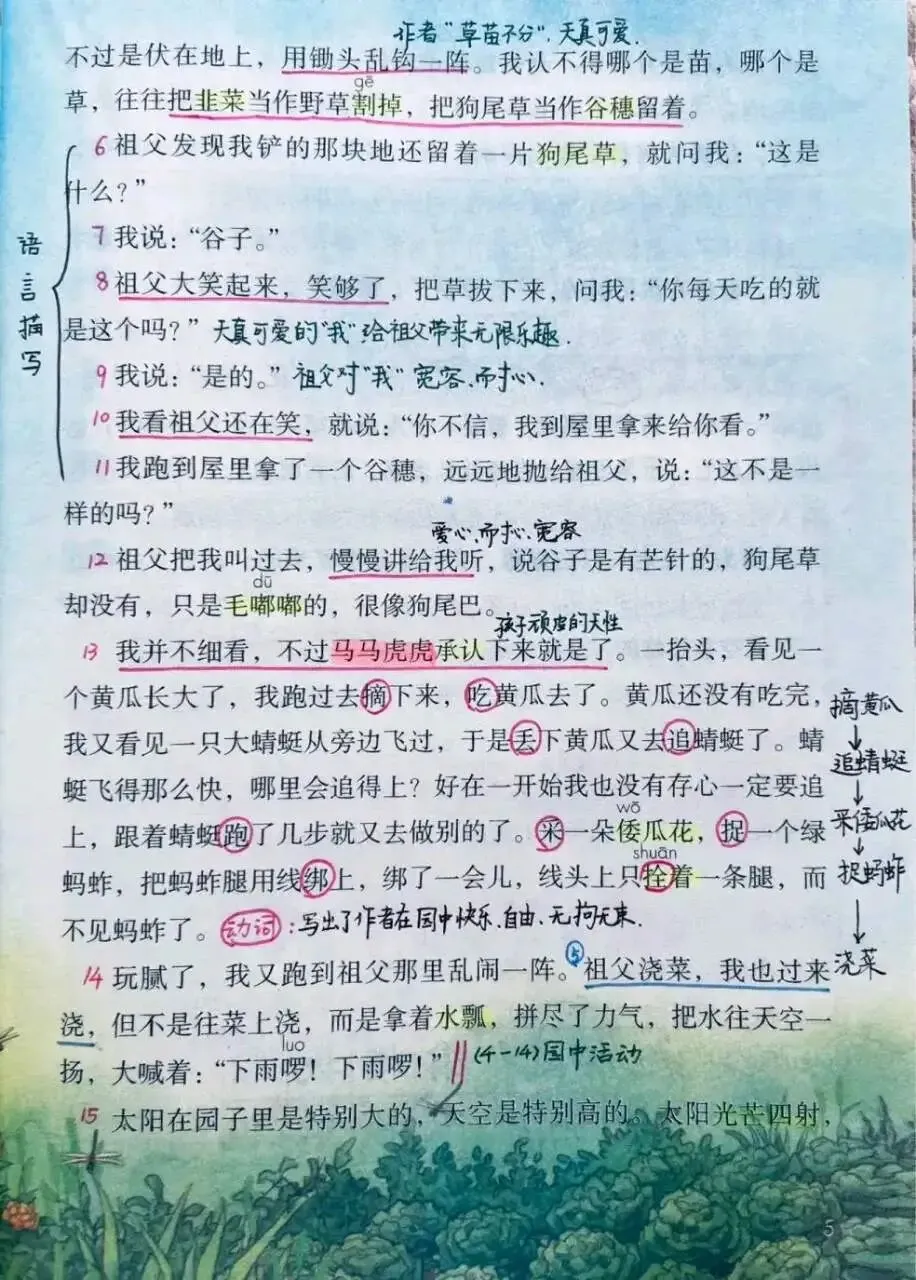 作者“草苗不分”、天真可爱.
不过是伏在地上，用锄头乱钩一阵。我认不得哪个是苗，哪个是
gē
草，往往把韭菜当作野草割掉，把狗尾草当作谷穗留着。
6 祖父发现我铲的那块地还留着一片狗尾草，就问我：“这是
什么？”
7 我说：“谷子。”
语言描写
8 祖父大笑起来，笑够了，把草拔下来，问我：“你每天吃的就
是这个吗？” 天真可爱的“我”给祖父带来无限乐趣.
9 我说：“是的。” 祖父对“我”宽容、耐心.
10 我看祖父还在笑，就说：“你不信，我到屋里拿来给你看。”
11 我跑到屋里拿了一个谷穗，远远地抛给祖父，说：“这不是一
样的吗？”
爱心、耐心、宽容
12 祖父把我叫过去，慢慢讲给我听，说谷子是有芒针的，狗尾草
dū
却没有，只是毛嘟嘟的，很像狗尾巴。
孩子顽皮的天性
13 我并不细看，不过马马虎虎承认下来就是了。一抬头，看见一
个黄瓜长大了，我跑过去摘下来，吃黄瓜去了。黄瓜还没有吃完，
摘黄瓜
我又看见一只大蜻蜓从旁边飞过，于是丢下黄瓜又去追蜻蜓了。蜻
追蜻蜓
蜓飞得那么快，哪里会追得上？好在一开始我也没有存心一定要追
wō
上，跟着蜻蜓跑了几步就又去做别的了。采一朵倭瓜花，捉一个绿
采倭瓜花
shuān
蚂蚱，把蚂蚱腿用线绑上，绑了一会儿，线头上只拴着一条腿，而
捉蚂蚱
不见蚂蚱了。 动词：写出了作者在园中快乐、自由、无拘无束.
14 玩腻了，我又跑到祖父那里乱闹一阵。⑤祖父浇菜，我也过来
浇菜
浇，但不是往菜上浇，而是拿着水瓢，拼尽了力气，把水往天空一
luo
扬，大喊着：“下雨啰！下雨啰！” (4-14)园中活动
15 太阳在园子里是特别大的，天空是特别高的。太阳光芒四射，
5